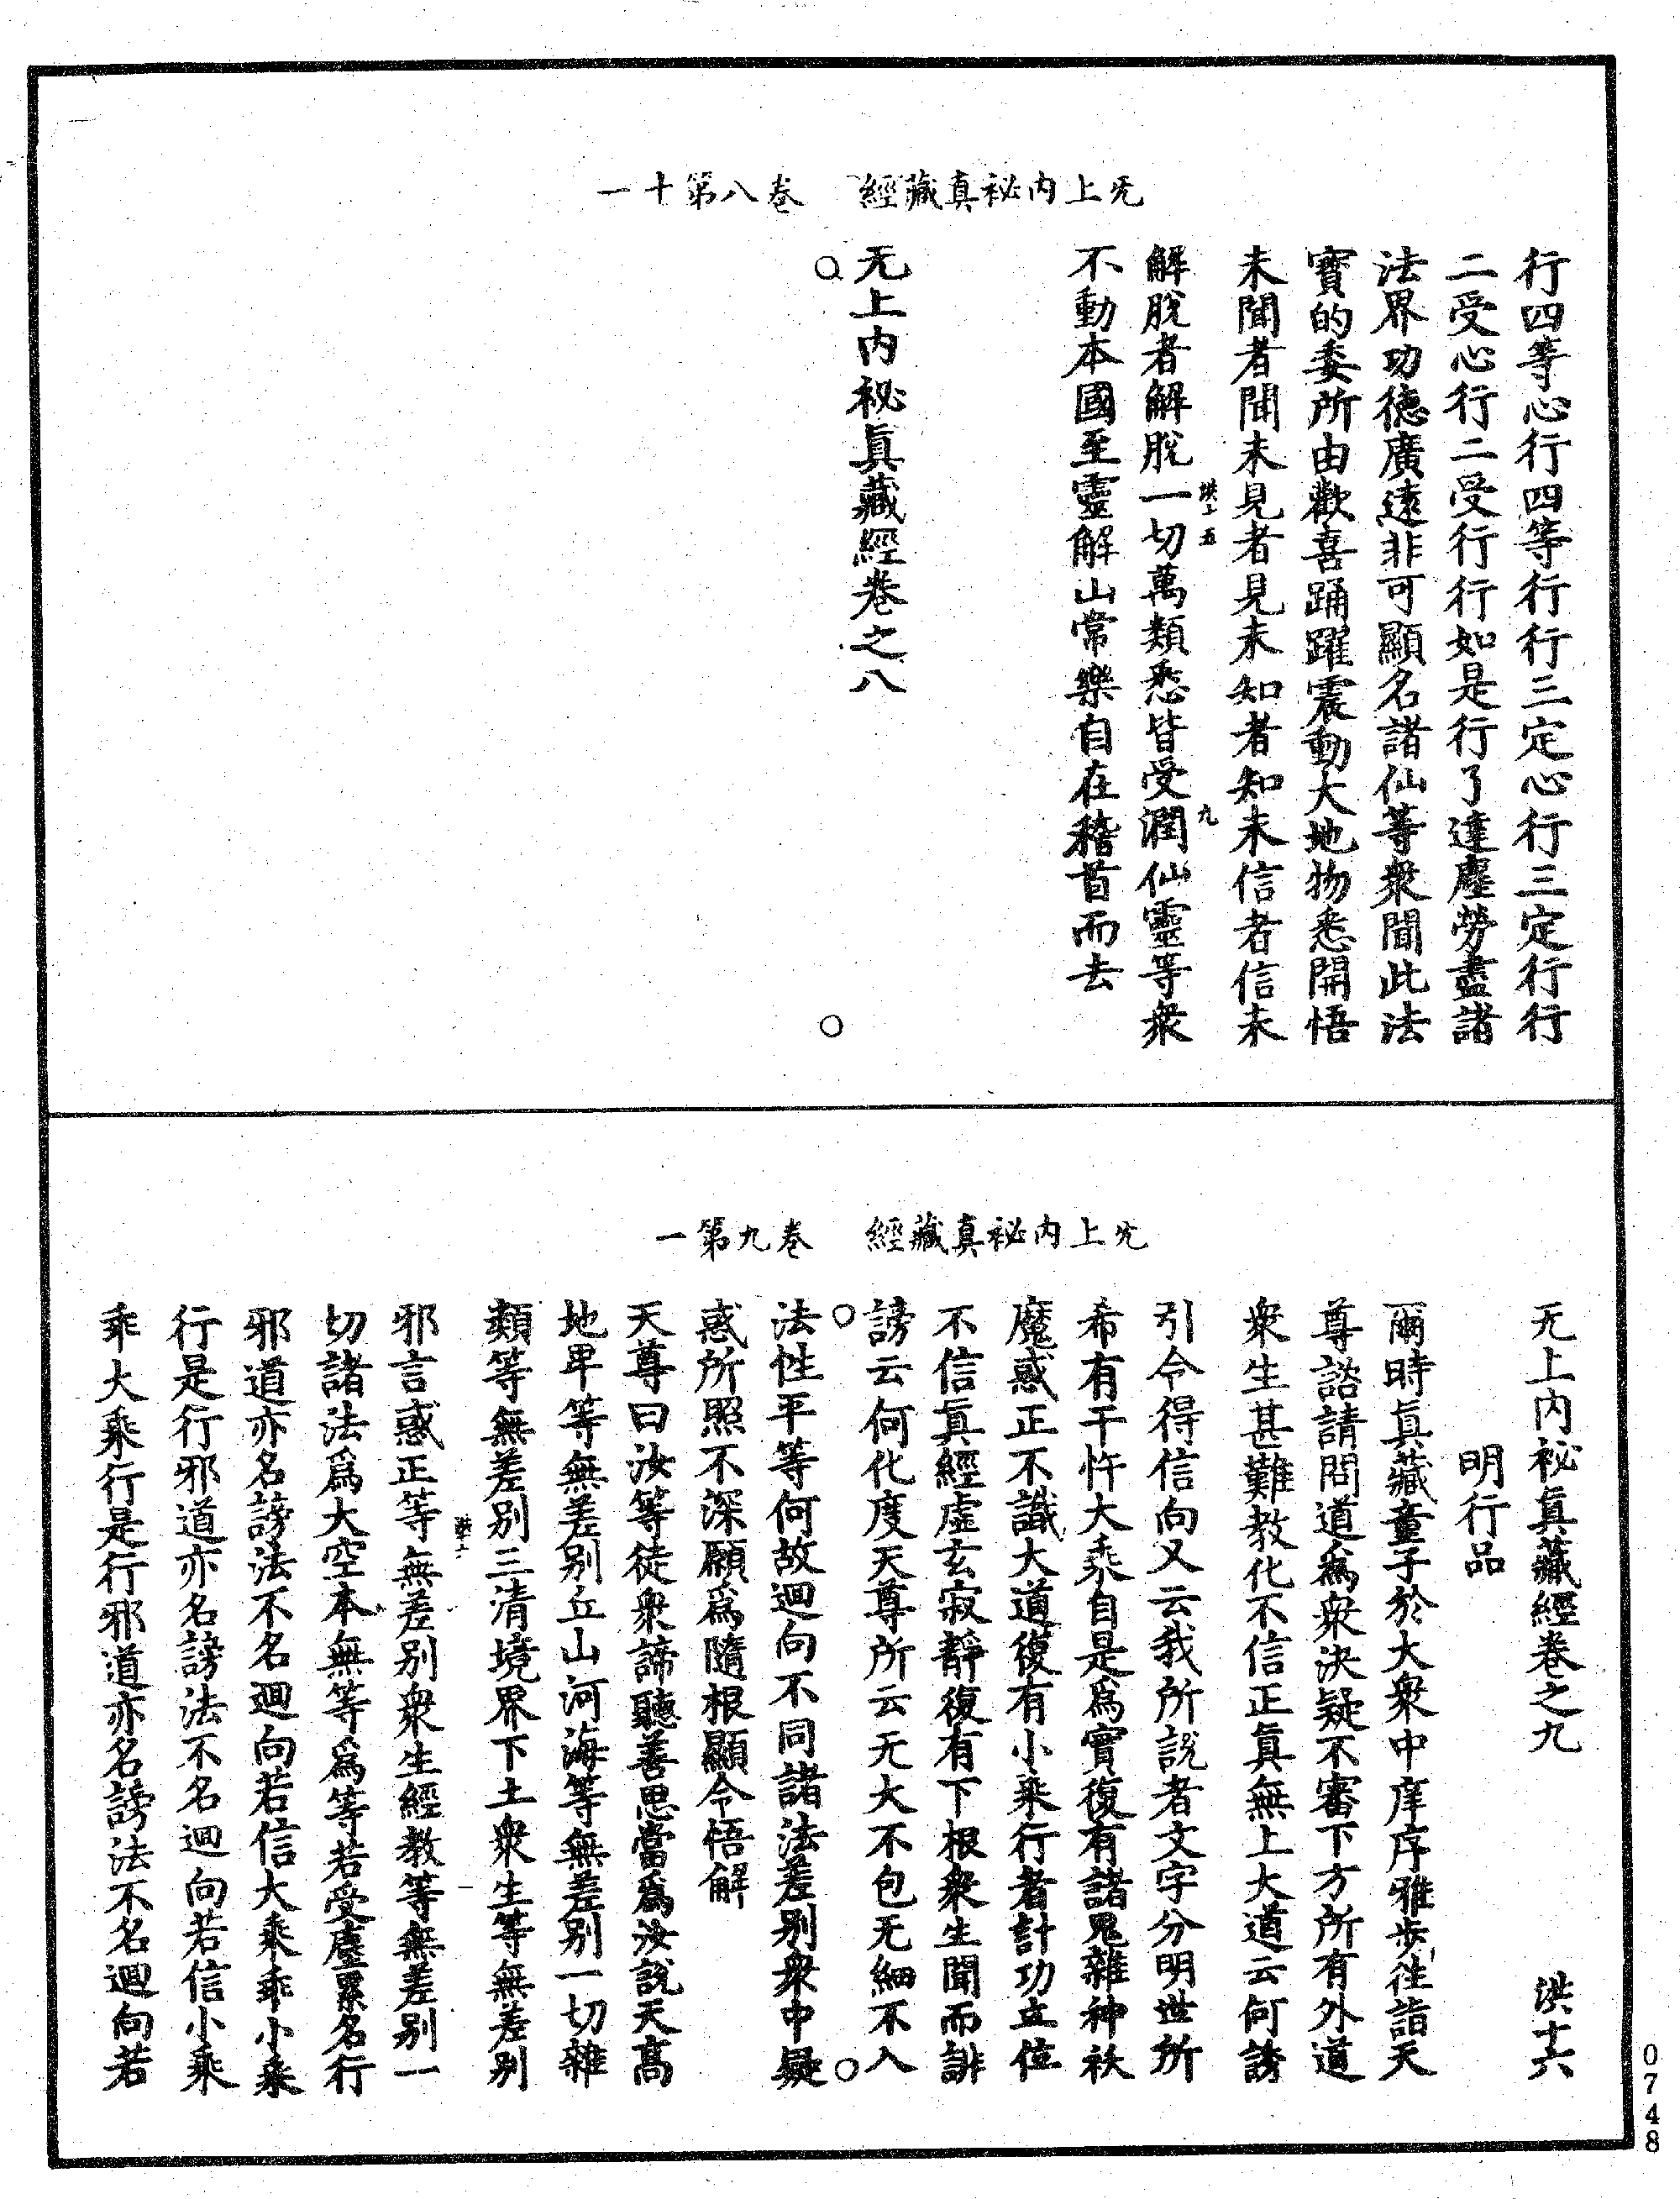 无上內祕真藏經　卷八第十一
行四等心行四等行行三定心行三定行行
二受心行二受行行如是行了達塵勞盡諸
法界功德廣遠非可顯名諸仙等衆聞此法
寶的委所由歡喜踊躍震動大地物悉開悟
未聞者聞未見者見未知者知未信者信未
解脫者解脫一切萬類悉皆受潤仙靈等衆
洪十五　九
不動本國至靈解山常樂自在稽首而去
无上內祕眞藏經卷之八
无上內祕真藏經　卷九第一
无上內祕眞藏經卷之九　洪十六
明行品
爾時眞藏童子於大衆中庠序雅步往詣天
尊諮請問道爲衆決疑不審下方所有外道
衆生甚難教化不信正眞無上大道云何誘
引令得信向又云我所說者文字分明世所
希有干忤大乘自是爲實復有諸鬼雜神祅
魔惑正不識大道復有小乘行者計功立位
不信眞經虛玄寂靜復有下根衆生聞而誹
謗云何化度天尊所云无大不包无細不入
法性平等何故迴向不同諸法差別衆中疑
惑所照不深願爲隨根顯令悟解
天尊曰汝等徒衆諦聽善思當爲汝說天高
地卑等無差別丘山河海等無差別一切雜
類等無差別三清境界下土衆生等無差別
邪言惑正等無差別衆生經教等無差別一
切諸法爲大空本無等爲等若受塵累名行
邪道亦名謗法不名迴向若信大乘乖小乘
行是行邪道亦名謗法不名迴向若信小乘
乖大乘行是行邪道亦名謗法不名迴向若
0748